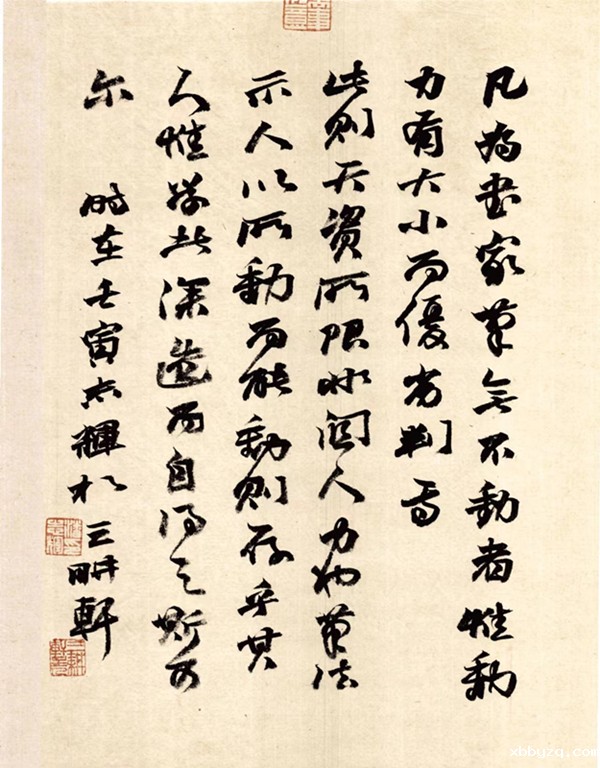 凡為書家筆無不動者惟動
力有大小而優劣判焉
此則天資所限非關人力也筆法
示人以所動而能動則存乎其
人惟學此深造而自得之斯可
尔 時在壬寅志輝於三畊軒
xbbuzq.com